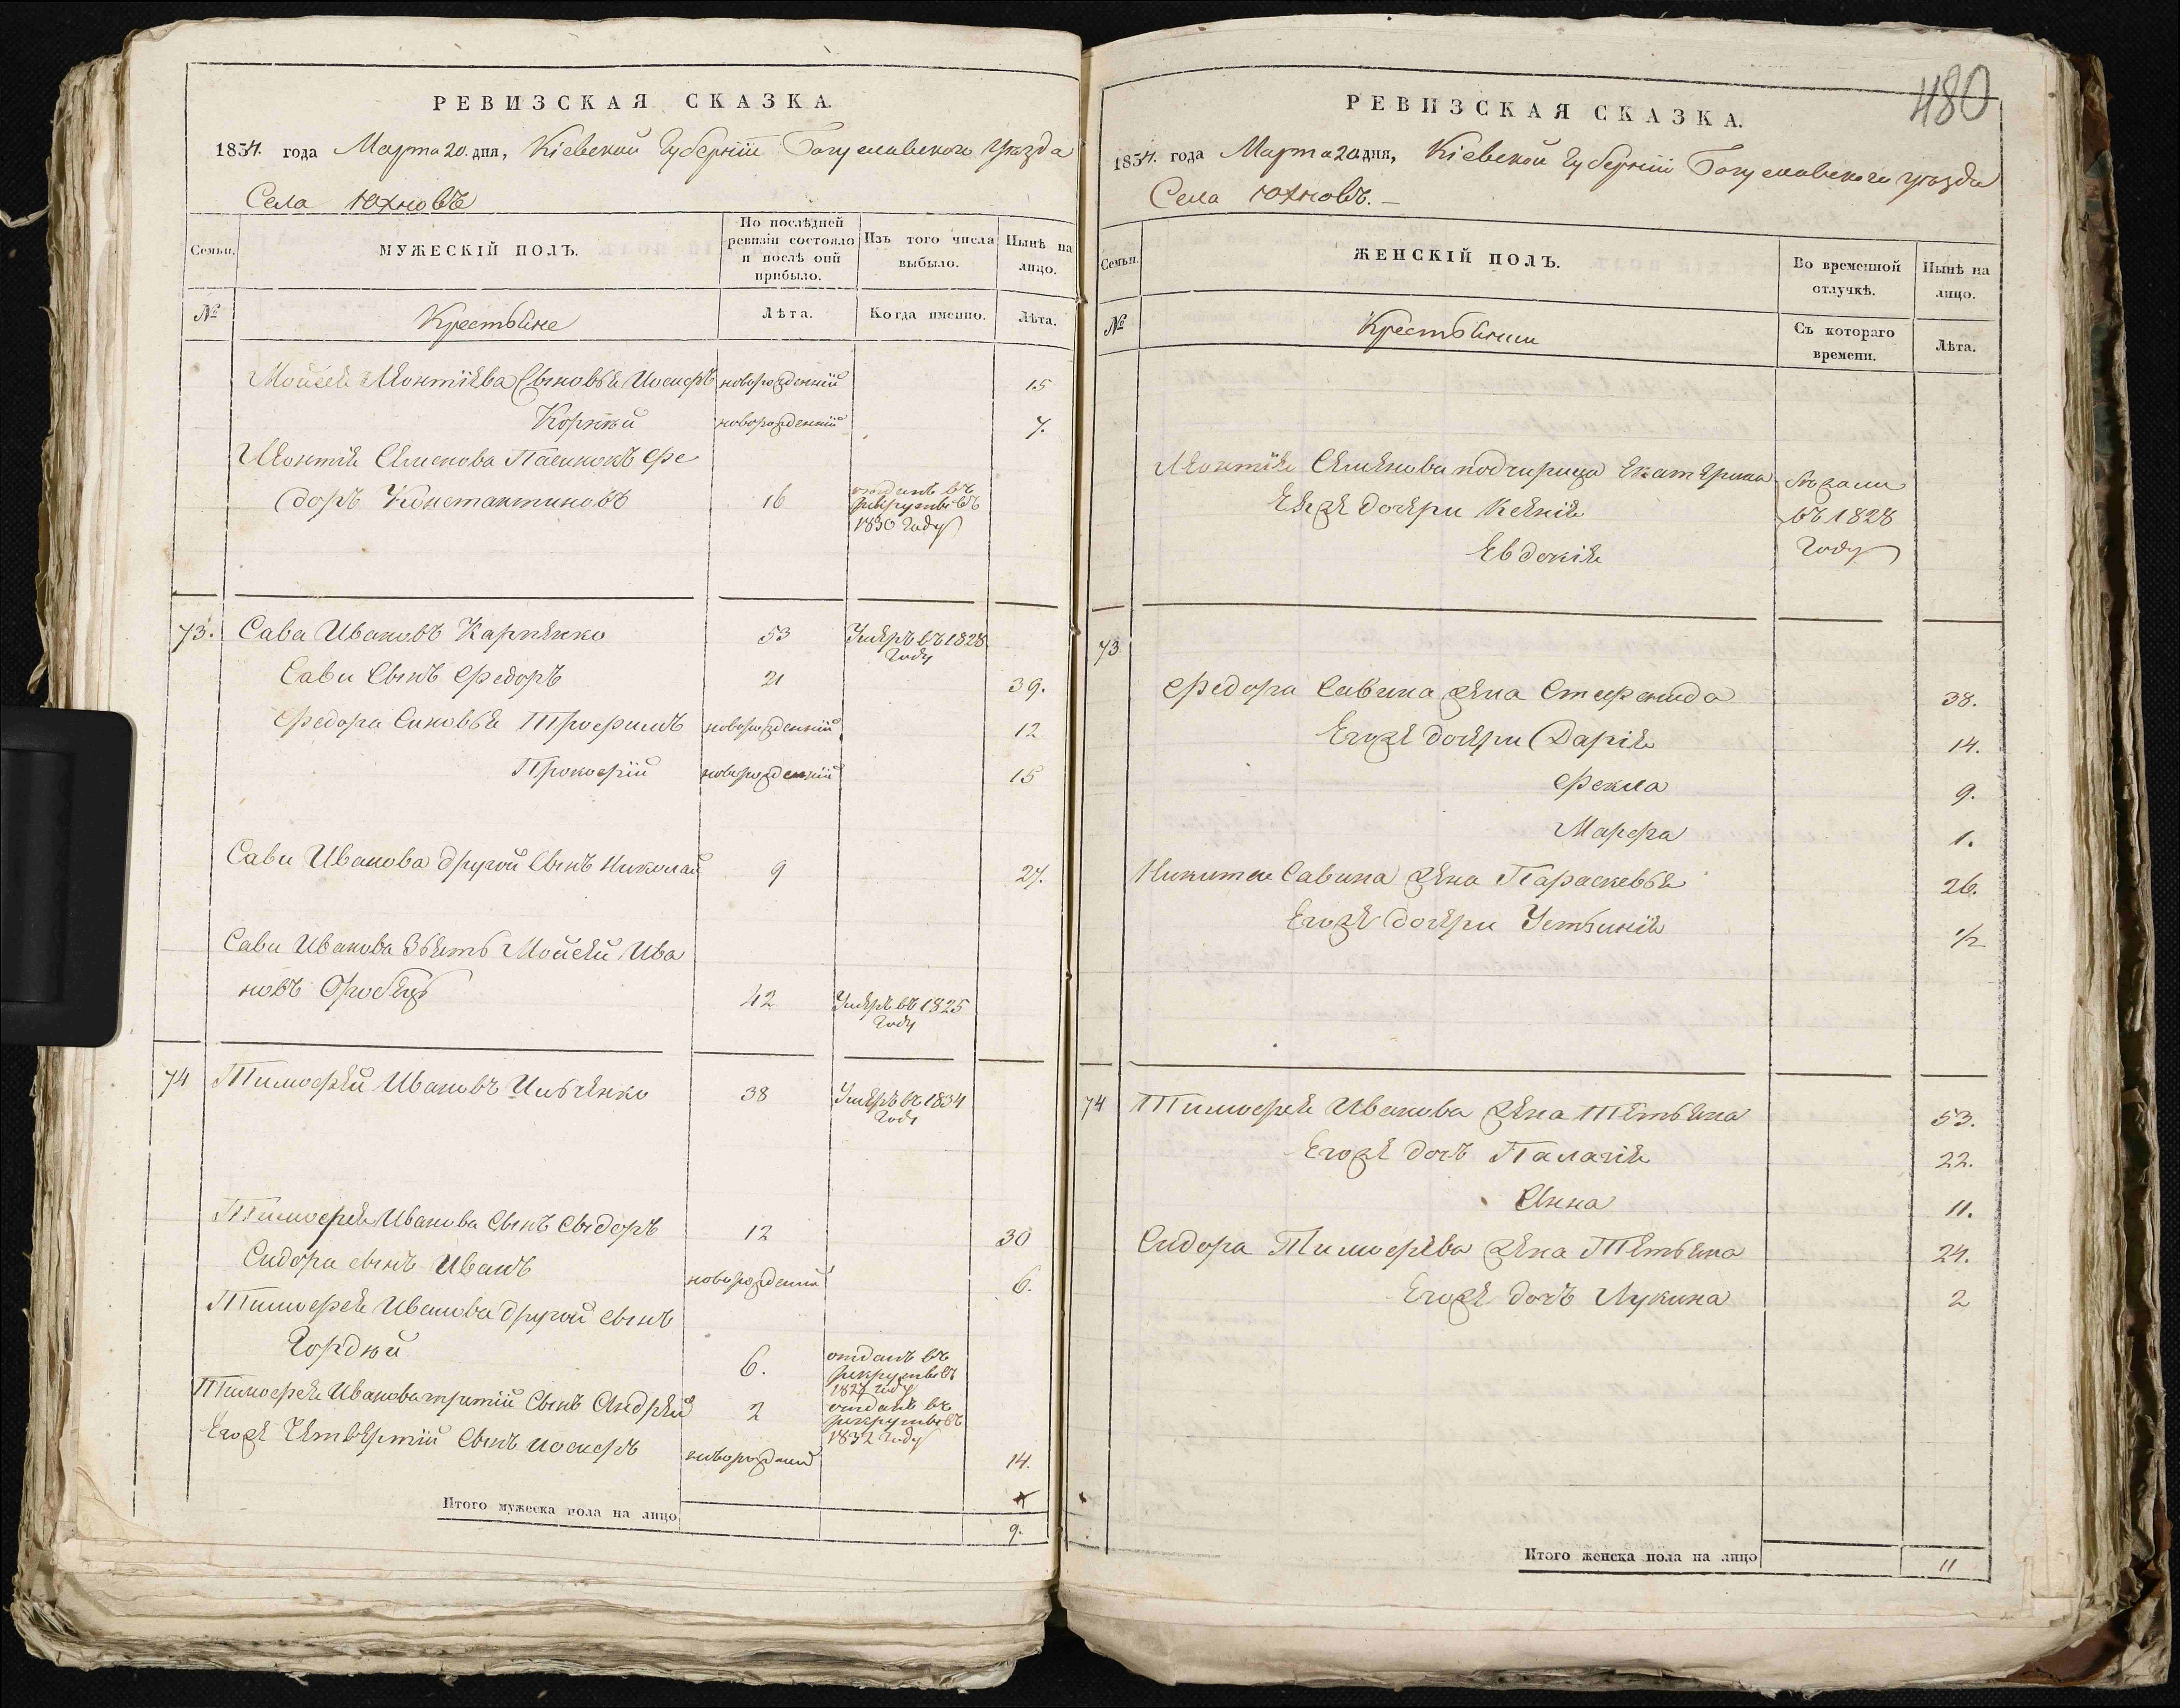 РЕВИЗСКАЯ СКАЗКА.
1834. года Марта 20. дня, Кіевской Губерніи Богуславского уѣзда
Села Юхновъ
Семьи.
МУЖЕСКІЙ ПОЛЪ.
По послѣдней ревизіи состояло и послѣ оной прибыло.
Изъ того числа выбыло.
Нынѣ на лицо.
№
Крестьяне
Лѣта.
Когда именно.
Лѣта.
Мойсея Леонтіева Сыновья Иосифъ новорожденній 15
Корнѣй новорожденній 7.
Леонтія Семенова Пасинокъ Фе
доръ Константиновъ 16 отданъ въ рекруты въ 1830 году
73. Сава Ивановъ Карпенко 53 Умеръ въ 1828 году
Сави Сынъ Федоръ 21 39.
Федора Синовья Трофимъ новорожденній 12
Прокофій новорожденній 15
Сави Иванова другой Сынъ Николай 9 27.
Сави Иванова Зять Мойсей Ива
новъ 42 Умеръ въ 1825 году
74 Тимофей Ивановъ 38 Умеръ въ 1834 году
Тимофея Иванова Сынъ Сыдоръ 12 30
Сидора сынъ Иванъ новорожденній 6.
Тимофея Иванова другой сынъ
Гордѣй 6. отданъ въ рекруты въ 1827 году
Тимофея Иванова третій Сынъ Андрей 2 отданъ въ рекруты въ 1832 году
Егоже Четвертій Сынъ Иосифъ 14.
Итого мужеска пола на лицо 9.
480
РЕВИЗСКАЯ СКАЗКА.
1834. года Марта 20 дня, Кіевской Губерніи Богуславского уѣзда
Села Юхновъ. —
Семьи.
ЖЕНСКІЙ ПОЛЪ.
Во временной отлучкѣ.
Нынѣ на лицо.
№
Крестьянки
Съ котораго времени.
Лѣта.
Леонтія Семенова подчирица Екатерина бѣжали
Еяже дочери Ксенія въ 1828
Евдокія году
73
Федора Савина жена Стефанида 38.
Егоже дочери Дарія 14.
Фекла 9.
Марфа 1.
Никити Савина жена Параскевья 26.
Егоже дочери Устинія 1/2
74 Тимофея Иванова жена Тетьяна 53.
Егоже дочъ Палагія 22.
Анна 11.
Сидора Тимофева жена Тетьяна 24.
Егоже дочъ Лукина 2
Итого женска пола на лицо 11